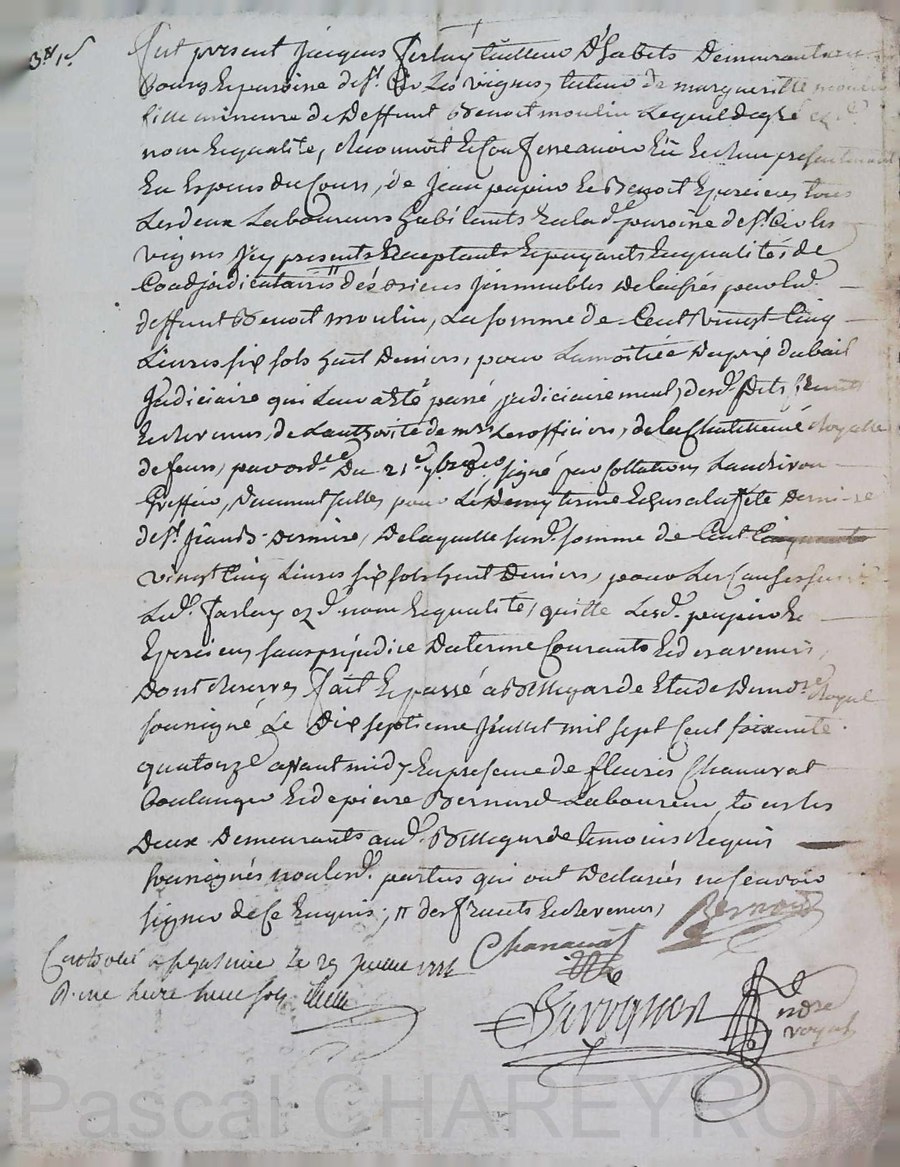 Fut present Jacques Ferlay tailleur D'habits Demeurant au
Bourg Et paroisse de St. Cir Les vignes, tuteur de margueritte moulin
fille mineure de Deffunt Benoit moulin Lequel de gré ezd.
nom Et qualité, A reconnüt Et Confessé avoir Eü Et Reçu presentement
En Espens du Cours, de Jean papin Et Benoit Epercieux tous
Les deux Laboureurs habitants En lad. paroisse de St. Cir les
vignes Icy presents Acceptants Et payants En qualités de
Coadjudicataires des biens Immeubles Delaissés par led.
deffunt Benoit moulin, La somme de Cent vingt Cinq
Livres six sols huit Deniers, pour La moitiée Du prix du bail
Judiciaire qui Leur a eté passé judiciairement, desd. fruits
Et Revenus, de L'authorité de mrs Les officiers, de la Chatelenie Royalle
de feurs, par ordce Du 21e signé par Collation Landivon
Greffier, Dument pour Le Demy terme Echus a la fête Derniere
de St. Jean Dernière, De laquelle susd. somme de Cent Cinquante
vingt Cinq Livres six sols huit Deniers, pour Les Causes susd.
Led. Ferlay ezd. nom Et qualité, quitte Lesd. papin Et
Epercieux sans préjudice Du terme Courants Et des avenir,
Dont Reserves fait Et passé a Bellegarde Etude Du nore Royal
soussigné Le Dix septieme Juillet mil sept Cent soixante
quatorze avant midy En presence de fleuris Chanavat
Boulanger Et de pierre Bernard Laboureur, tous les
Deux Demeurants aud. Bellegarde temoins Requis
soussignés non lesd. parties qui ont Declarés ne scavoir
signer de Ce Enquis; // des fruits Et Revenus,
Bernard
Chanavat
Controllé a Le 29 Juillet 1774
R. une livre huit sols
nore
royal
Pascal CHAREYRON